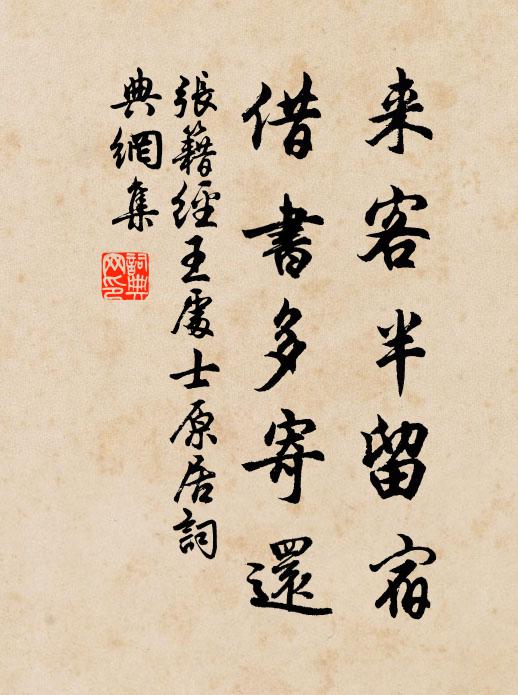 来客半留宿
借書多寄還
張籍經王處士原居詞
典網集
詞典網印